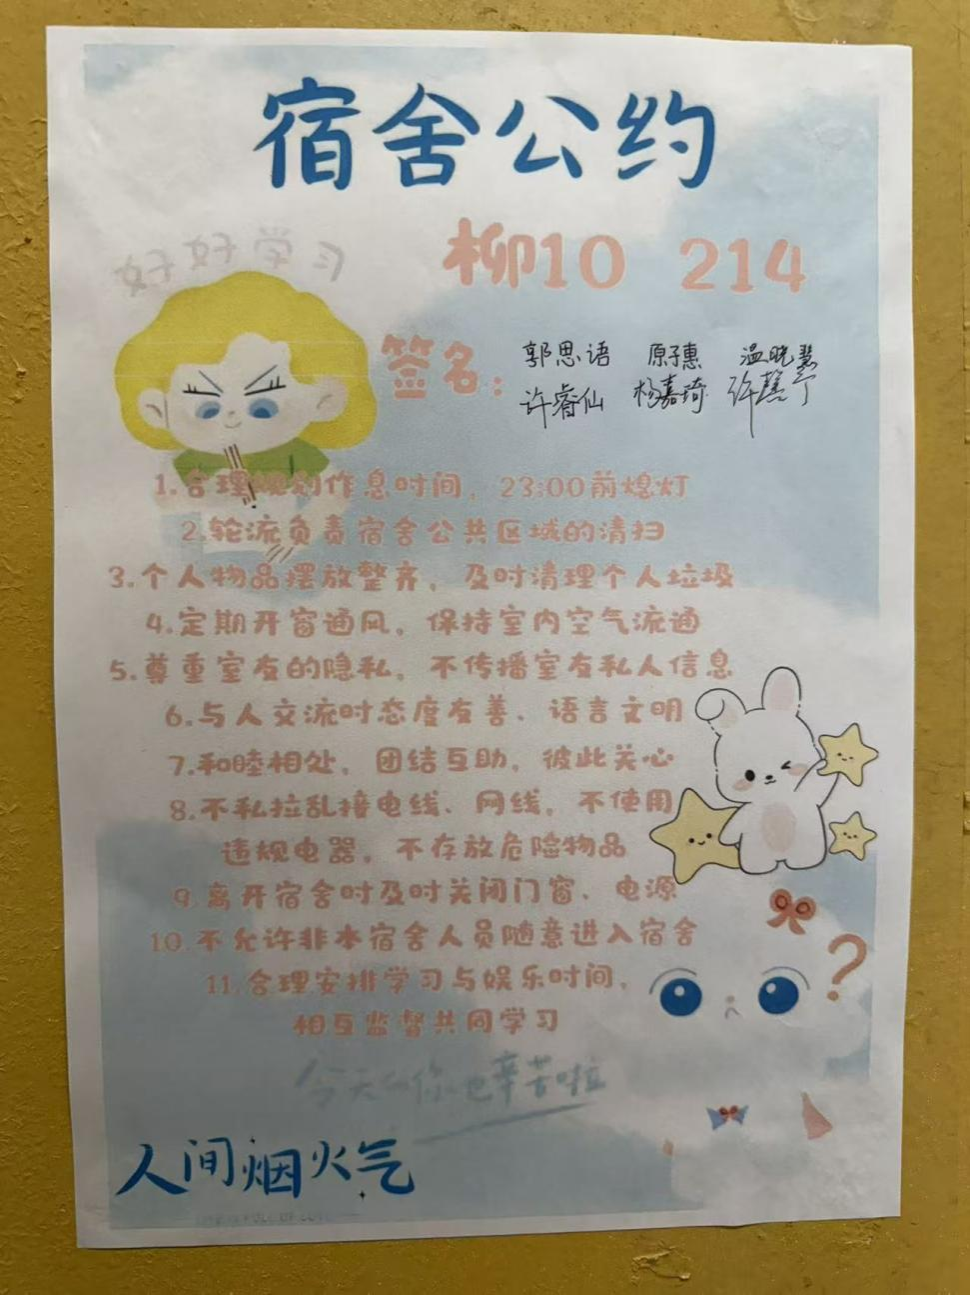 宿舍公约
好好学习
柳10 214
签名:
郭思语 原子惠 温晓慧
许睿仙 杨嘉琦
1.合理规划作息时间，23:00前熄灯
2.轮流负责宿舍公共区域的清扫
3.个人物品摆放整齐，及时清理个人垃圾
4.定期开窗通风，保持室内空气流通
5.尊重室友的隐私，不传播室友私人信息
6.与人交流时态度友善、语言文明
7.和睦相处，团结互助，彼此关心
8.不私拉乱接电线、网线，不使用
违规电器，不存放危险物品
9.离开宿舍时及时关闭门窗、电源
10.不允许非本宿舍人员随意进入宿舍
11.合理安排学习与娱乐时间，
相互监督共同学习
?
今天的你也辛苦啦
人间烟火气